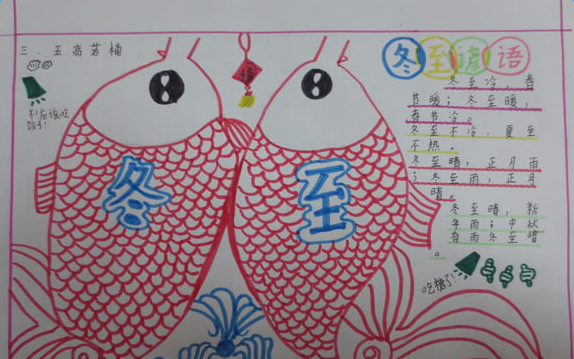 三、王高若楠
不应该吃
饭了!
冬
至
冬至谚语
冬至冷,春
节暖;冬至暖,
春节冷。
冬至不冷,夏至
不热。
冬至晴,正月雨
;冬至雨,正月
晴。
冬至晴,新
年雨;中秋
有雨冬至晴
。
吃糖了!